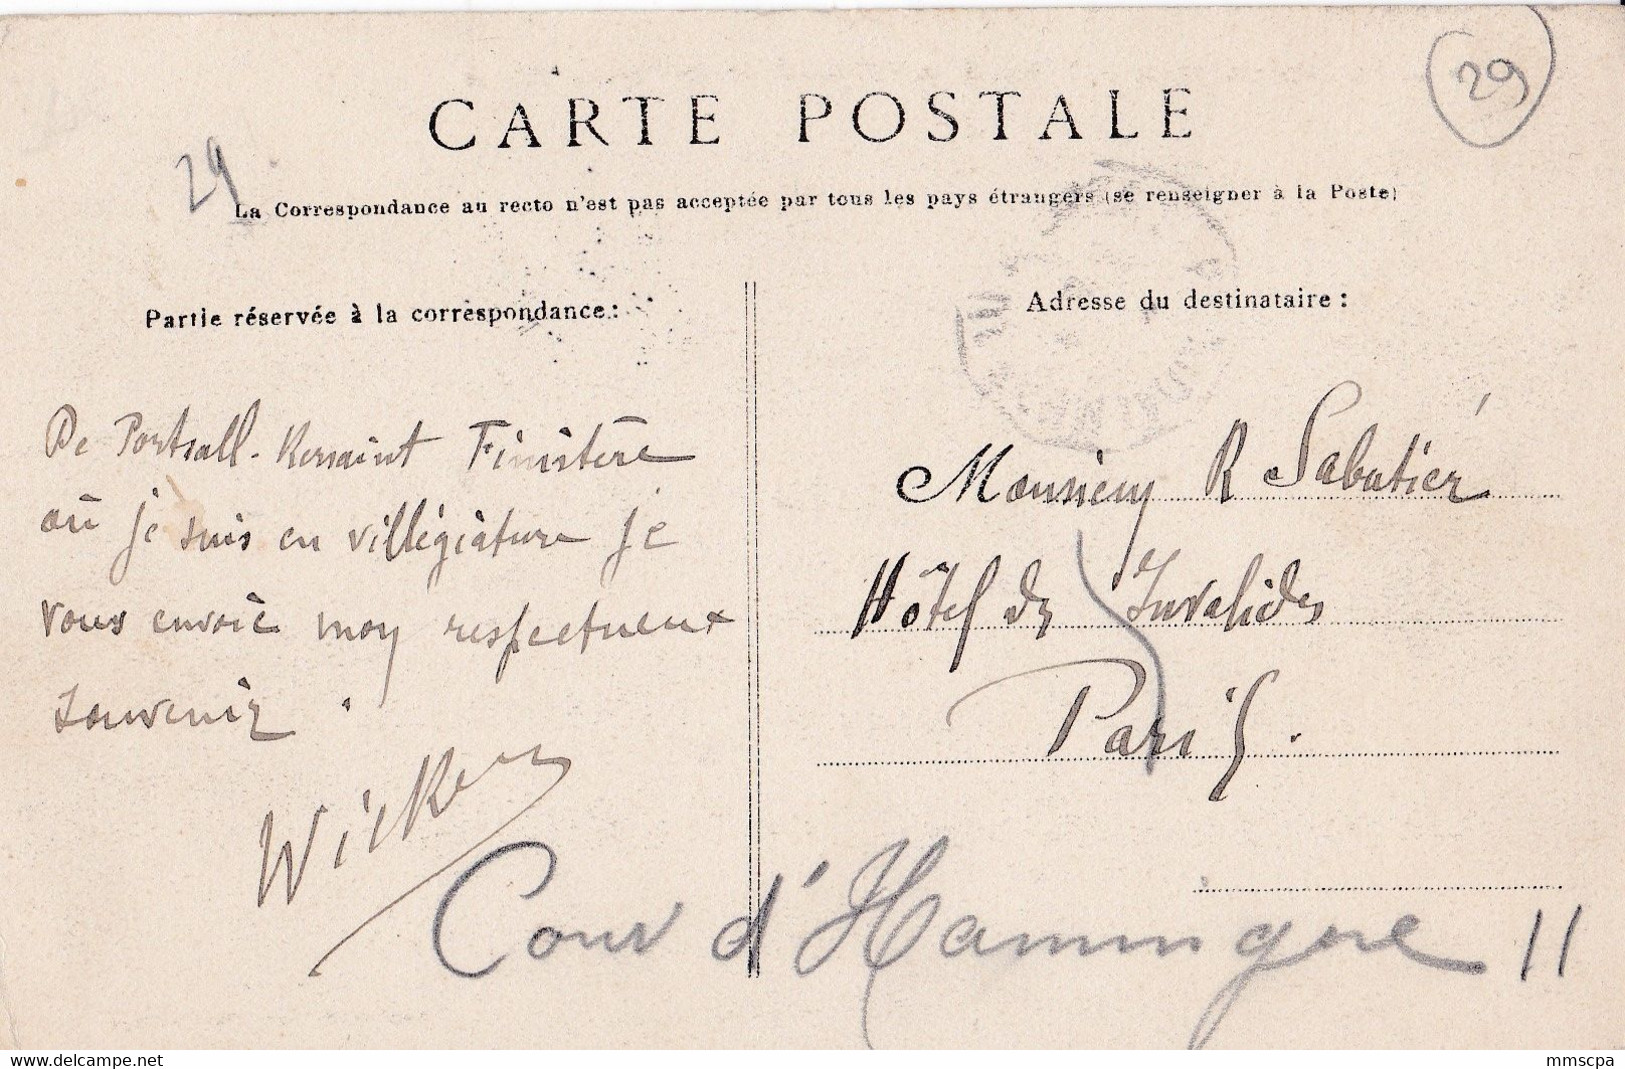 29
CARTE POSTALE
29
La Correspondance au recto n'est pas acceptée par tous les pays étrangers (se renseigner à la Poste)
Partie réservée à la correspondance :
De Portsall-Kersaint Finistère
où je suis en villégiature je
vous envoie mon respectueux
souvenir.
Adresse du destinataire :
Monsieur R Sabatier
Hôtel des Invalides
Paris.
Cour d'Hamingue 11
www.delcampe.net
mmscpa